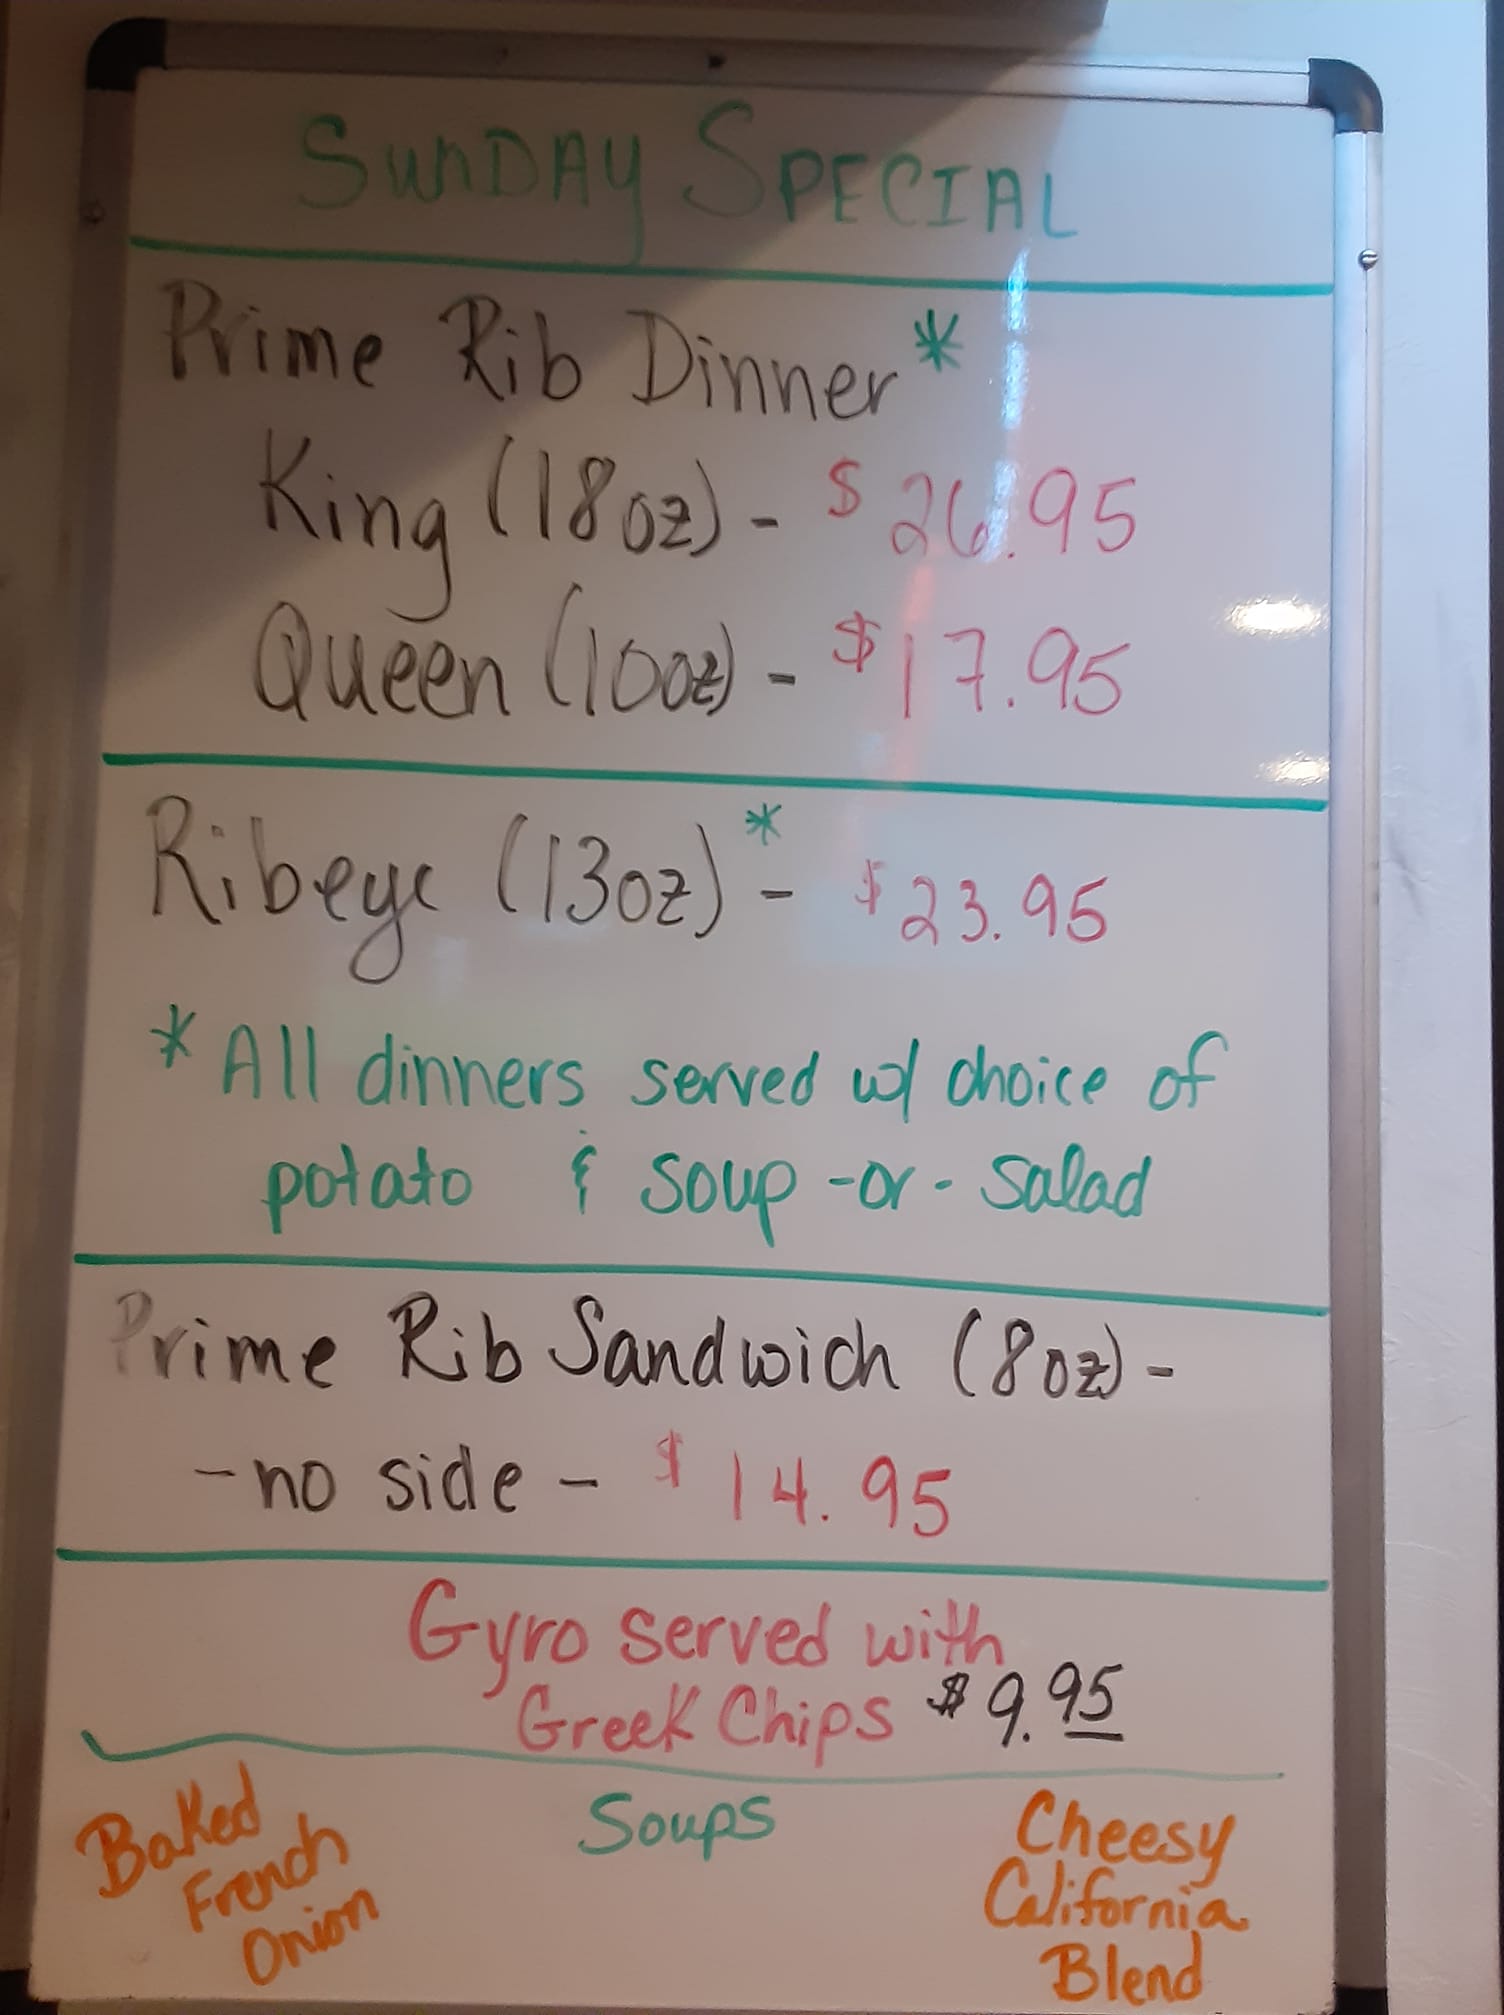 SunDAY SPECIAL
Prime Rib Dinner *
King (18oz) - $26.95
Queen (10oz) - $17.95
Ribeye (13oz)* - $23.95
* All dinners served w/ choice of
potato & soup -or- salad
Prime Rib Sandwich (8oz) -
- no side - $14.95
Gyro served with
Greek Chips $9.95
Soups
Baked
French
Onion
Cheesy
California
Blend